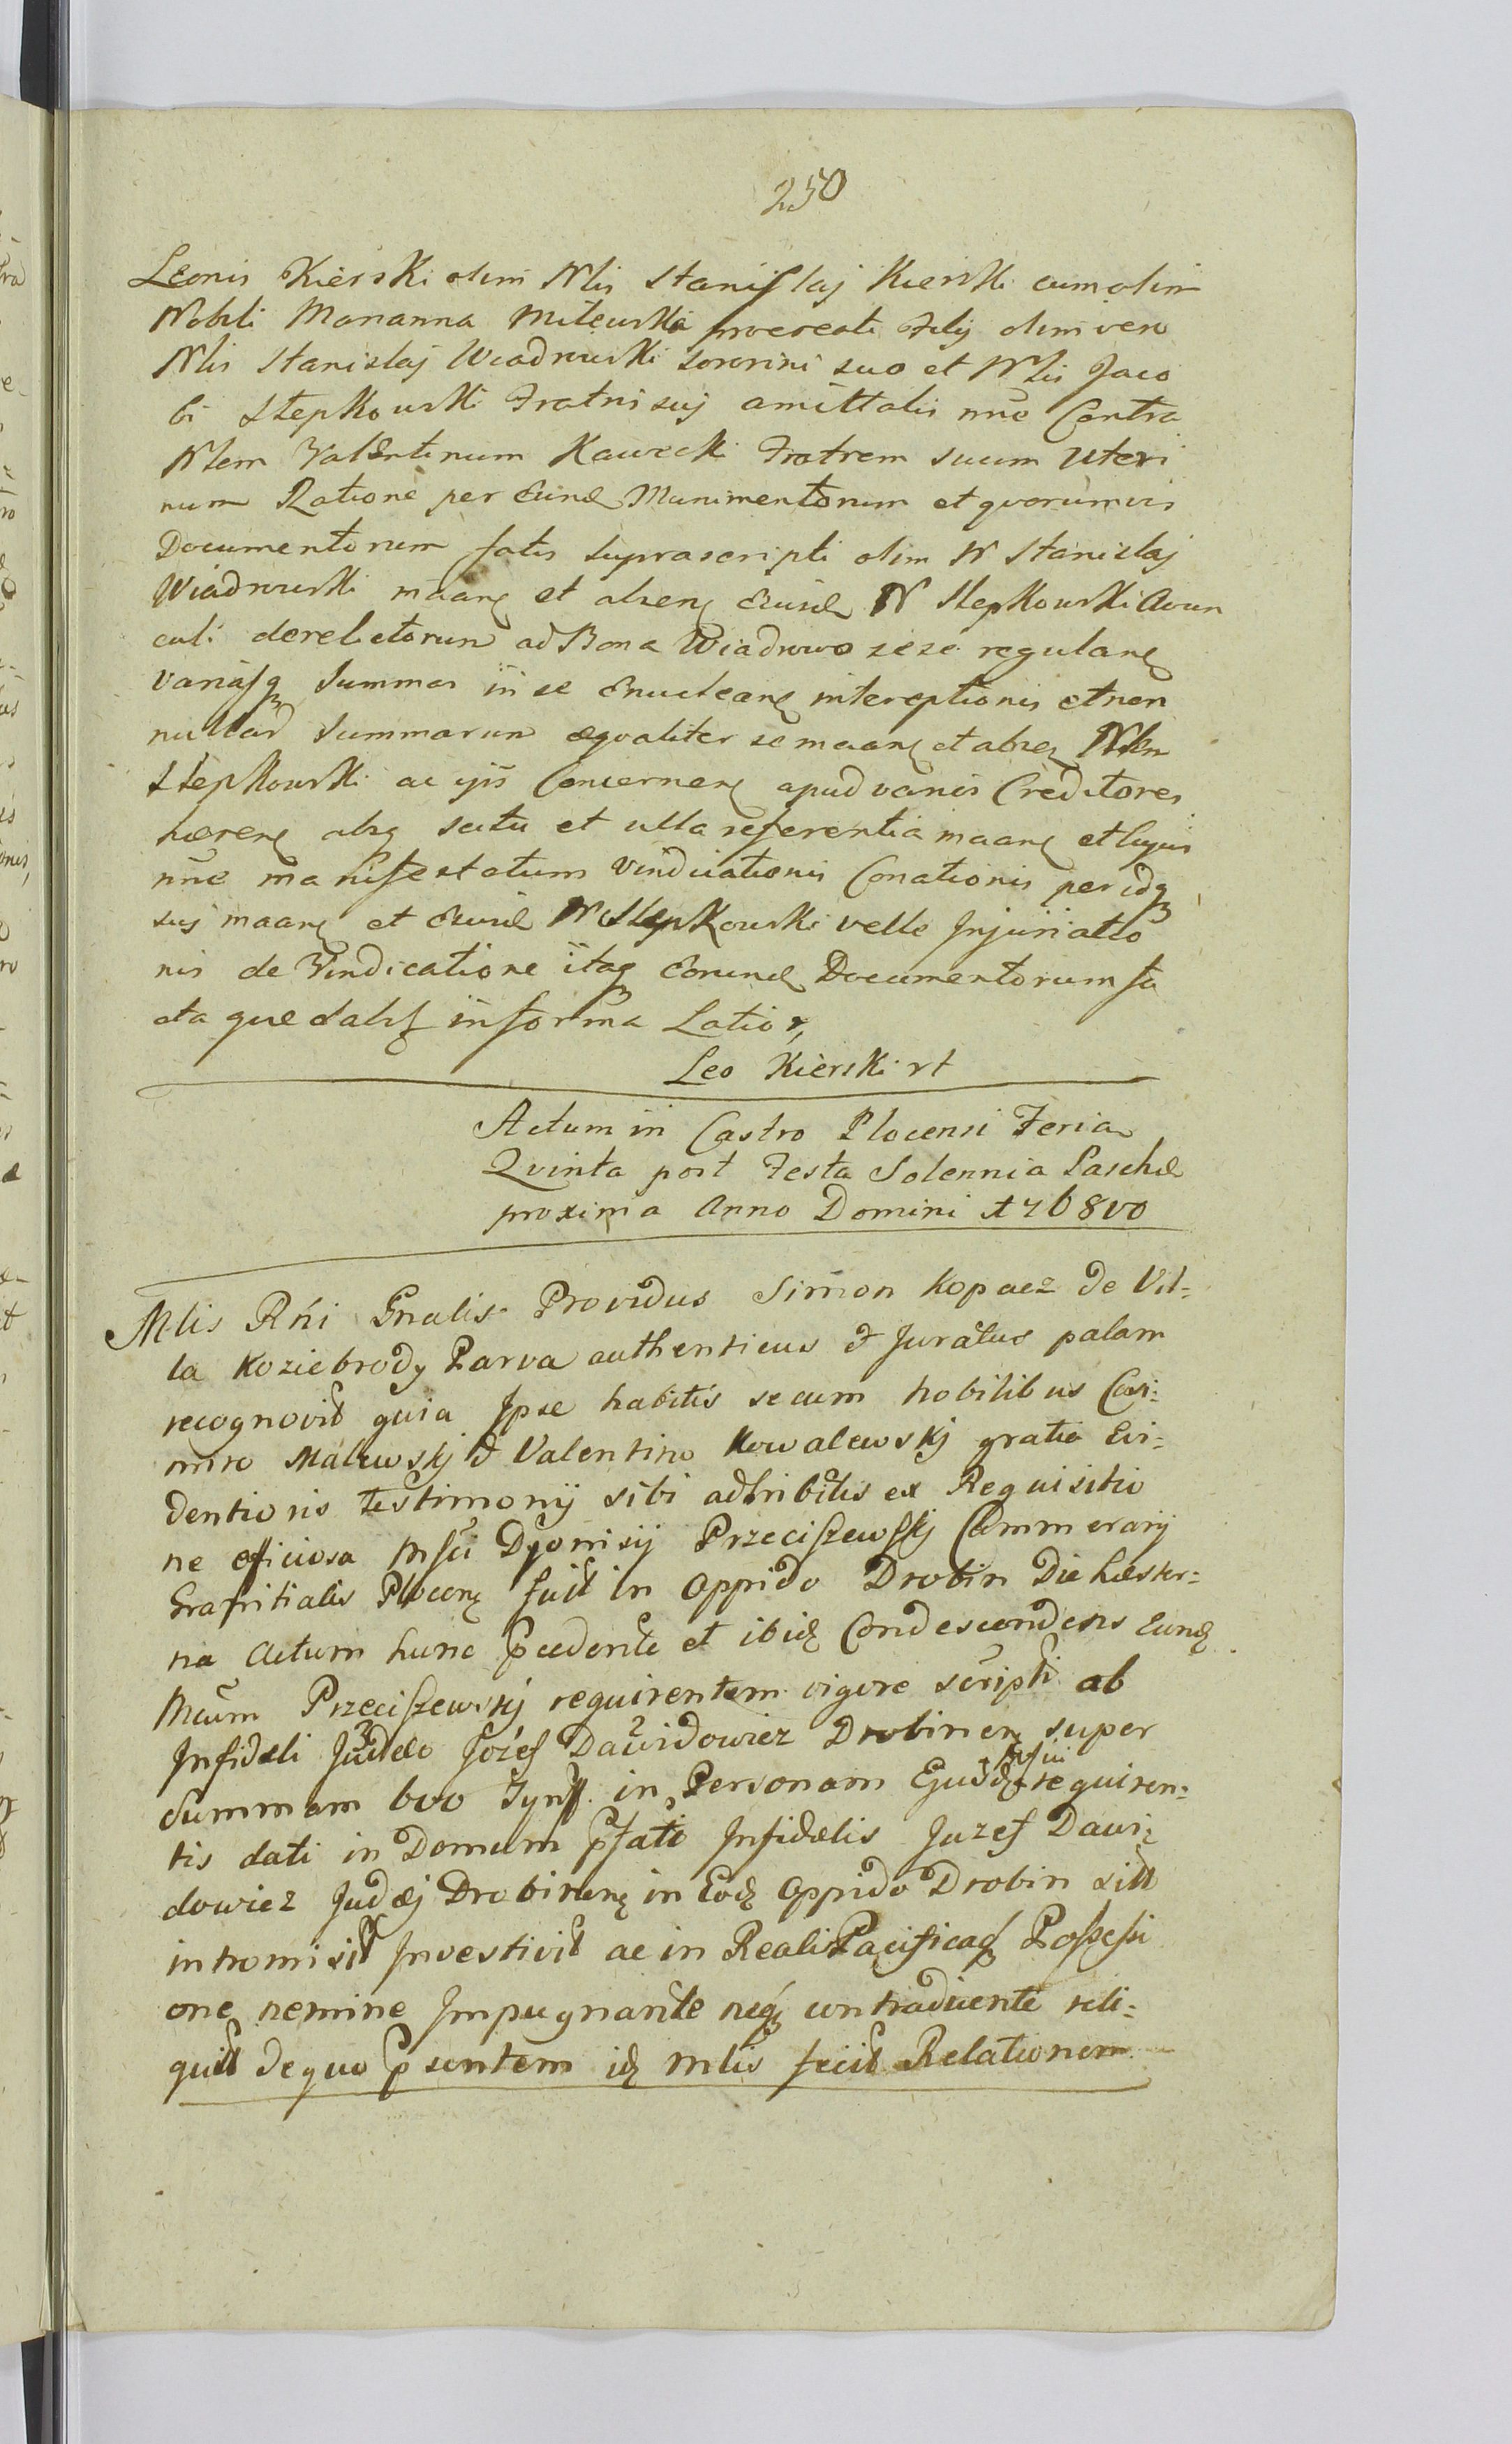 250
Leonis Kierski olim Nlis Stanislaj Kierski cum olim
Nobili Marianna Milewska procreati Filij olim vero
Nlis Stanislaj Wiadrowski sororini suo et Nlis Jaco
bi Stepkowski Fratris suj amittalis nūc Contra
Nlem Valentinum Kawecki Fratrem suum Uteri
num Ratione per Eund Munimentorum et qvorumvis
Documentorum fatis suprascripti olim N Stanislaj
Wiadrowski et Eiusd N Stepkowski Avun
culi derelictorum ad Bona Wiadrowo sese regulanę
variasq Summas in se Enucleanę interceptionis et non
nullar Summarum æqvaliter se maanę et Nlem
Stepkowski ac ijs Concernenę apud varios Creditores
hærenę absq scitu et ulla referentia maanę et hujus
nūc manifestatum Vindicationis Conationis per idq
suj maanę et Eiusd N Stepkowski velle Injuriatio
nis de Vindicatione itaq Eorund Documentorum fa
cta que informa Latior,
Leo Kierski rt
Actum in Castro Plocensi Feria
Qvinta post Festa Solennia Paschæ
proxima Anno Domini 1768vo
Mlis Rńi Gnalis Providus Simon Kopacz de Vil=
la Koziebrody Parva authenticus & Juratus palam
recognovit quia Ipse habitis secum nobilibus Casi=
miro Malewskj & Valentino Kowalewskj gratia Evi=
dentioris testimonij sibi adhibitis ex Requisitio
ne oficiosa Mfci Dyonisij Przeciszewskj Cammerarij
Granitialis Plocenę fuit in Oppido Drobin Die hester=
na Actum hunc pcedente et ibid Condescendens Eund
Mcum Przeciszewskj requirentem vigore scripti ab
Infideli Judæo Jozef Dawidowicz Drobinenę super
Summam 600 Tynff. in Personam Ejusd Mfici requiren=
tis dati in Domum pfati Infidelis Juzef Dawi=
dowicz Judæj Drobinenę in Eod Oppido Drobin sitt
intromisit Investivit ac in Reali Pacificaq Possessi
one nemine Impugnante neq contradicente reli=
quit de quo psentem id Mlis fecit Relationem